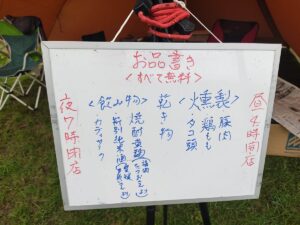 お品書き
<すべて無料>
昼4時開店
<燻製>
・豚肉
・鶏もも
・タコ頭
乾き物
<飲み物>
・焼酎
・カティサーク
夜7時閉店